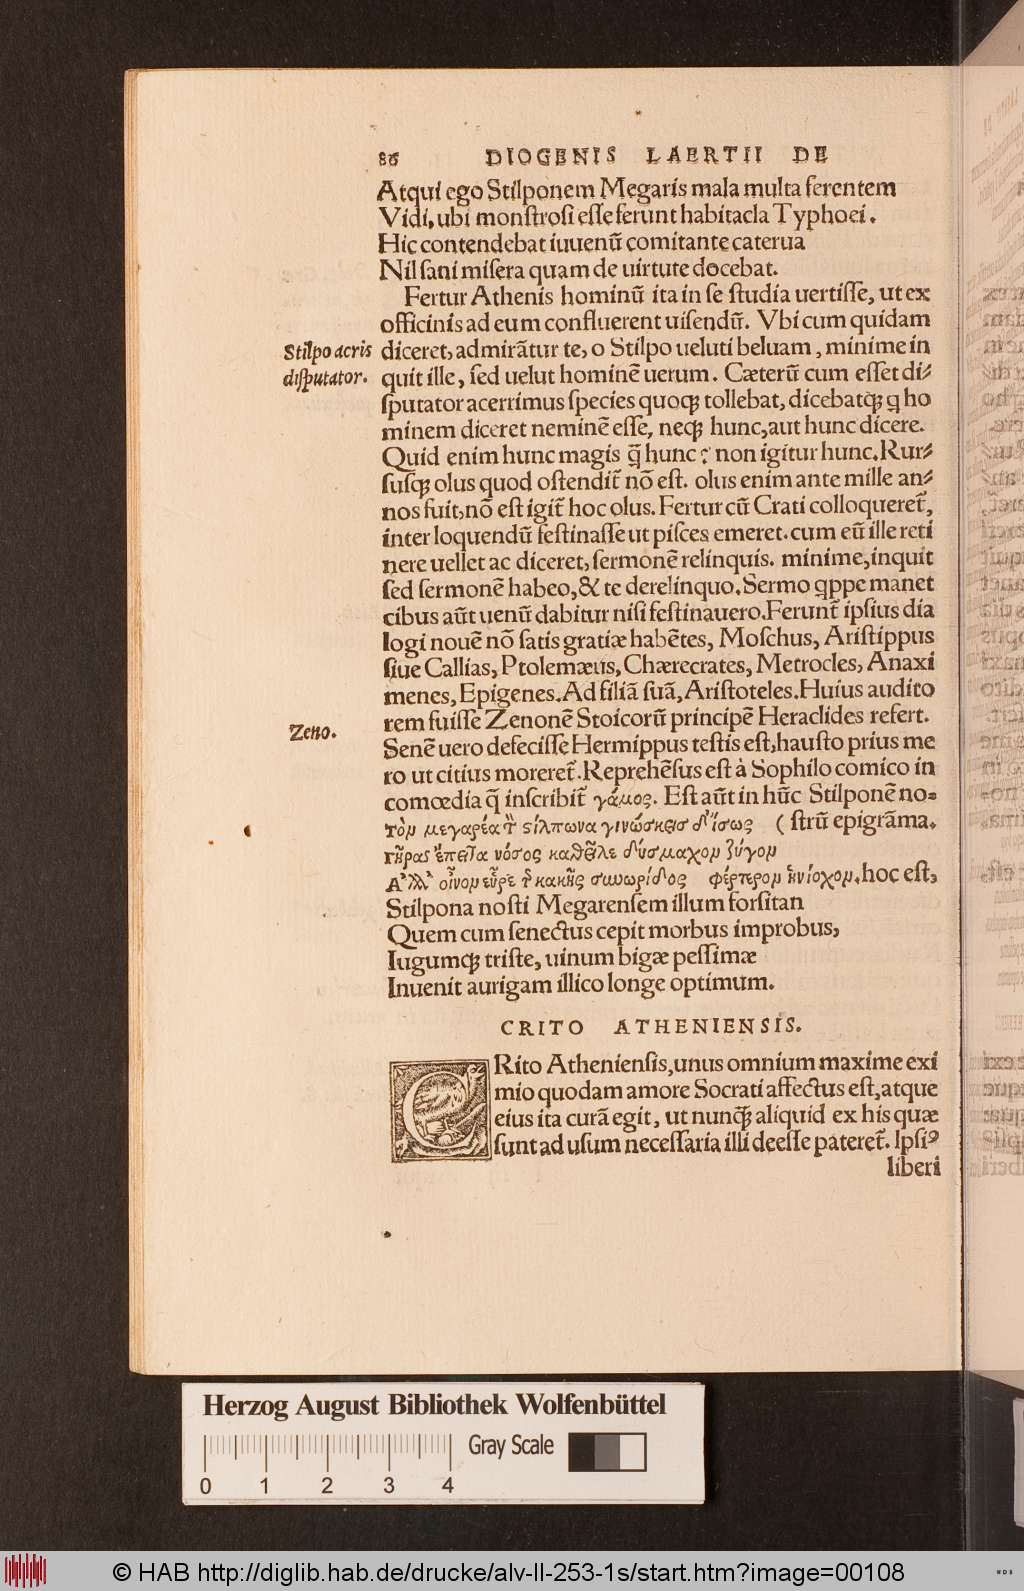 86 DIOGENIS LAERTII DE
Atqui ego Stilponem Megaris mala multa ferentem
Vidi, ubi monstrosi esse ferunt habitacla Typhoei.
Hic contendebat iuuenũ comitante caterua
Nil sani misera quam de uirtute docebat.
Fertur Athenis hominũ ita in se studia uertisse, ut ex
officinis ad eum confluerent uisendũ. Vbi cum quidam
Stilpo acris
disputator.
diceret, admirãtur te, o Stilpo ueluti beluam, minime in
quit ille, sed uelut hominẽ uerum. Cæterũ cum esset di⸗
sputator acerrimus species quoqꝫ tollebat, dicebatqꝫ q ho
minem diceret neminẽ esse, neqꝫ hunc, aut hunc dicere.
Quid enim hunc magis q̃ hunc? non igitur hunc. Rur⸗
susqꝫ olus quod ostendit̃ nõ est. olus enim ante mille an⸗
nos fuit, nõ est igit̃ hoc olus. Fertur cũ Crati colloqueret̃,
inter loquendũ festinasse ut pisces emeret. cum eũ ille reti
nere uellet ac diceret, sermonẽ relinquis. minime, inquit
sed sermonẽ habeo, & te derelinquo. Sermo qppe manet
cibus aũt uenũ dabitur nisi festinauero. Ferunt̃ ipsius dia
logi nouẽ nõ satis gratiæ habẽtes, Moschus, Aristippus
siue Callias, Ptolemæus, Chærecrates, Metrocles, Anaxi
menes, Epigenes. Ad filiã suã, Aristoteles. Huius audito
Zeno.
rem fuisse Zenonẽ Stoicorũ principẽ Heraclides refert.
Senẽ uero defecisse Hermippus testis est, hausto prius me
ro ut citius moreret̃. Reprehẽsus est à Sophilo comico in
comœdia q̃ inscribit̃ γάμος. Est aũt in hũc Stilponẽ no⸗
τὸν μεγαρέα τ̃ ςίλπωνα γινώσκεισ δ’ἴσως (strũ epigrãma.
γῆρας ἔπειτα νόσος καθεῖλε δύσμαχον ζύγον
ἀλλ’ οἶνον εὗρε τ̃ κακῆς συνωρίδος φέρτερον ἡνίοχον. hoc est,
Stilpona nosti Megarensem illum forsitan
Quem cum senectus cepit morbus improbus,
Iugumqꝫ triste, uinum bigæ pessimæ
Inuenit aurigam illico longe optimum.
CRITO ATHENIENSIS.
CRito Atheniensis, unus omnium maxime exi
mio quodam amore Socrati affectus est, atque
eius ita curã egit, ut nunqꝫ̃ aliquid ex his quæ
sunt ad usum necessaria illi deesse pateret̃. Ipsiꝰ
liberi
Herzog August Bibliothek Wolfenbüttel
Gray Scale
0 1 2 3 4
© HAB http://diglib.hab.de/drucke/alv-ll-253-1s/start.htm?image=00108